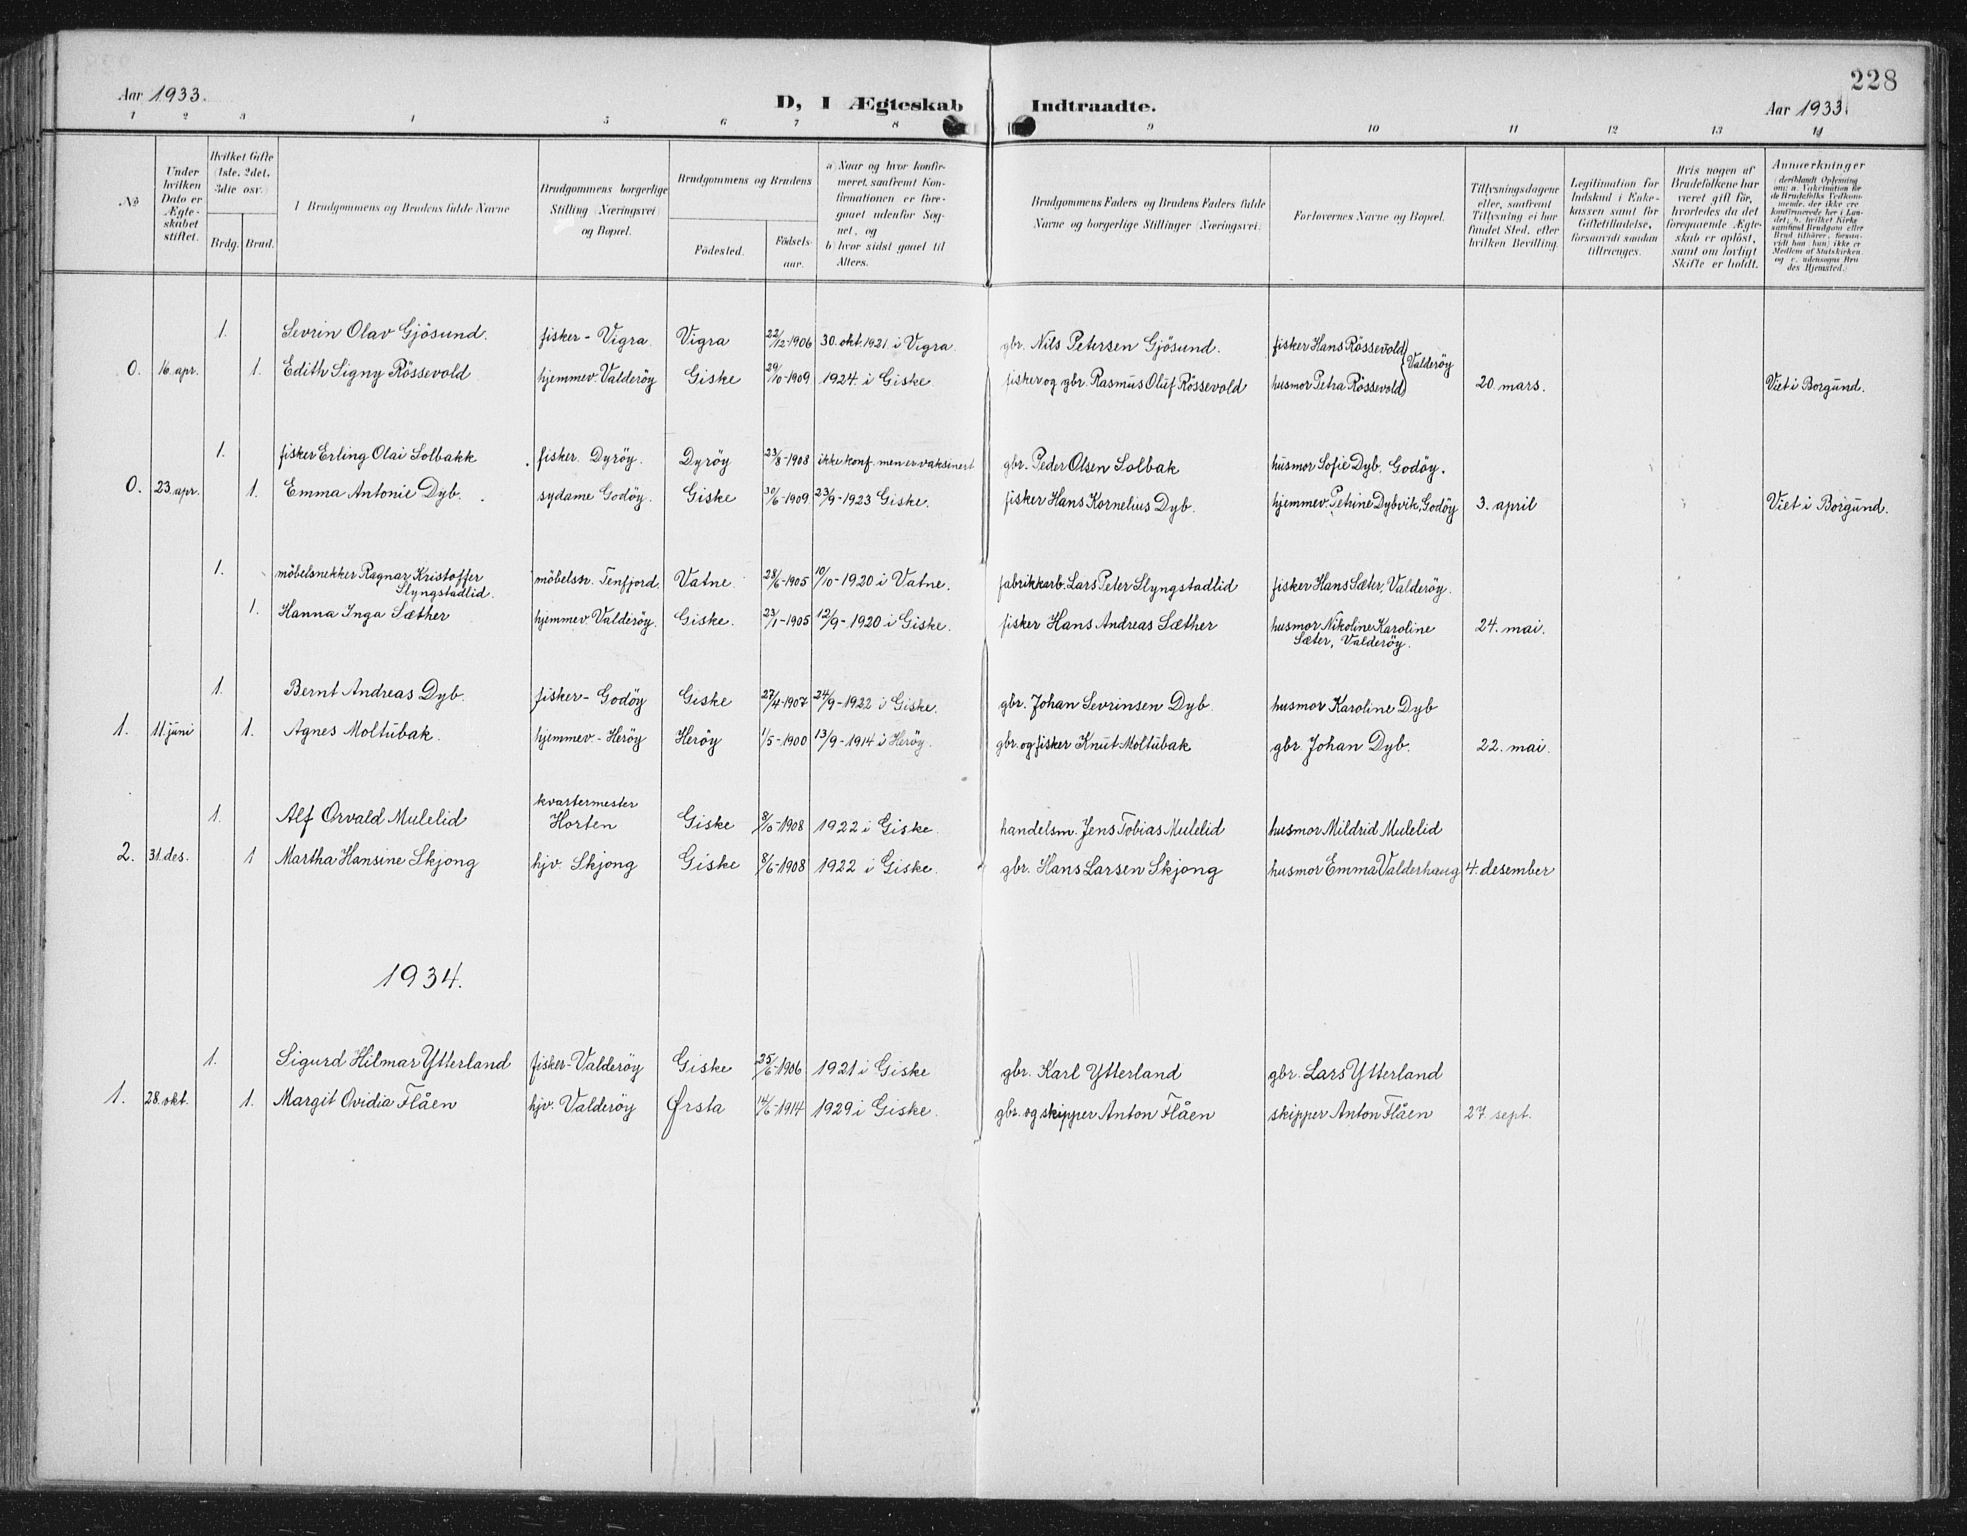 228
Aar 1933.
D, I Ægteskab Indtraadte.
Aar 1933.
1 2 3 4 5 6 7 8 9 10 11 12 13 14
No
Under hvilken Dato er Ægteskabet stiftet.
Hvilket Gifte (1ste, 2det, 3die osv.)
Brdg. Brud.
Brudgommens og Brudens fulde Navne
Brudgommens borgerlige Stilling (Næringsvei) og Bopæl.
Brudgommens og Brudens
Fødested.
Fødselsaar.
a) Naar og hvor konfirmeret, saafremt Konfirmationen er foregaaet udenfor Sognet, og
b) hvor sidst gaaet til Alters.
Brudgommens Faders og Brudens Faders fulde Navne og borgerlige Stillinger (Næringsvei).
Forlovernes Navne og Bopæl.
Tillysningsdagene eller, saafremt Tillysning ei har fundet Sted, efter hvilken Bevilling.
Legitimation for Indskud i Enkekassen samt for Giftetilladelse, forsaavidt saadan tiltrænges.
Hvis nogen af Brudefolkene har været gift før, hvorledes da det foregaaende Ægteskab er opløst, samt om lovligt Skifte er holdt.
Anmærkninger (deriblandt Oplysning om: a. Vakcination for de Brudefolks Vedkommende, der ikke ere konfirmerede her i Landet; b. hvilket Kirkesamfund Brudgom eller Brud tilhører, forsaavidt han (hun) ikke er Medlem af Statskirken, og c. udensogns Brudes Hjemsted.)
1. Sevrin Olav Gjösund. fisker - Vigra. Vigra 22/12-1906 30. okt. 1921 i Vigra. gbr. Nils Petersen Gjösund. fisker Hans Rössevold
Valderöy
0. 16. apr. 1. Edith Signy Rössevold hjemmev. Valderöy Giske 29/10-1909 1924 i Giske. fisker og gbr. Rasmus Oluf Rössevold husmor Petra Rössevold 20. mars. Viet i Borgund.
1. fisker Erling Olai Solbakk fisker. Dyröy. Dyröy 23/8-1908 ikke konf. men er vaksinert gbr. Peder Olsen Solbak husmor Sofie Dyb, Godöy.
0. 23. apr. 1. Emma Antonie Dyb. sydame Godöy. Giske 30/6-1909 23/9-1923 Giske. fisker Hans Kornelius Dyb. hjemmev. Petrine Dybvik, Godöy 3. april Viet i Borgund.
1. möbelsnekker Ragnar Kristoffer Slyngstadlid. möbelsn. Tenfjord. Vatne 28/6-1905 10/10-1920 i Vatne. fabrikkarb. Lars Peter Slyngstadlid fisker Hans Sæter, Valderöy.
1. Hanna Inga Sæther hjemmev. Valderöy. Giske. 23/1-1905 12/9-1920 i Giske. fisker Hans Andreas Sæther husmor Nikoline Karoline Sæter, Valderöy. 24. mai.
1. Bernt Andreas Dyb. fisker - Godöy Giske 27/4-1907 24/9-1922 i Giske. gbr. Johan Sevrinsen Dyb. husmor Karoline Dyb
1. 11. juni 1. Agnes Moltubak. hjemmev - Heröy Heröy 1/5-1900 13/9-1914 i Heröy. gbr. og fisker Knut Moltubak gbr. Johan Dyb. 22. mai.
kvartermester
1. Alf Orvald Mulelid Horten Giske 8/6-1908 1922 i Giske. handelsm. Jens Tobias Mulelid husmor Mildrid Mulelid
2. 31. des. 1 Martha Hansine Skjong hjv. Skjong Giske 8/6-1908 1922 i Giske. gbr. Hans Larsen Skjong husmor Emma Valderhaug 4. desember
1934.
1. Sigurd Hilmar Ytterland fisker - Valderöy Giske 25/6-1906 1921 i Giske gbr. Karl Ytterland gbr. Lars Ytterland
1. 28. okt. 1. Margit Ovidia Flåen hjv. Valderöy Ørsta 14/6-1914 1929 i Giske. gbr. og skipper Anton Flåen skipper Anton Flåen 27. sept.